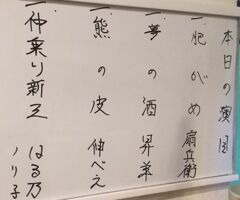 本日の演目
一、肥がめ 扇兵衛
一、夢の酒 昇羊
一、熊の皮 伸べえ
一、仲乗り新三 はる乃
ノリ子